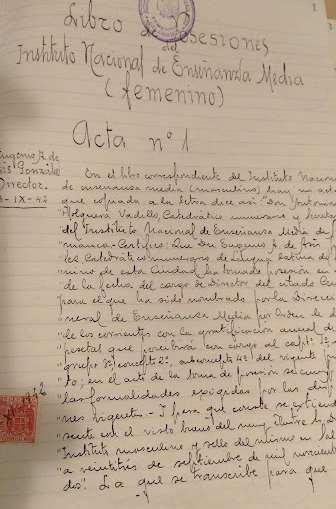 Libro de Posesiones
del
Instituto Nacional de Enseñanza Media
(femenino)
Acta nº 1
Eugenio A. de
Asis González
Director.
IX-42
En el libro correspondiente del Instituto Nacional
de enseñanza media (masculino) hay un acta
que copiada a la letra dice así: "Don Antonio
Vadillo, Catedrático numerario y
del Instituto Nacional de Enseñanza Media de
manca - Certifico: Que Don Eugenio A. de Asis
Catedrático numerario de Lengua Latina del
mino de esta Ciudad ha tomado posesión en
de la fecha del cargo de Director del citado
para el que ha sido nombrado por la Direcc
neral de Enseñanza Media por orden de
de los corrientes con la gratificación anual de
pesetas que percibirá con cargo al capº 1º,
grupo 3º, concepto 2º, subconcepto 4º del vigente
to; en el acto de la toma de posesión se cump
las formalidades exigidas por las
nes vigentes - Y para que conste
sente con el visto bueno del muy Ilustre
Instituto masculino y sello del mismo en Sala
a veintitrés de septiembre de mil novecientos
dos". La que se transcribe para que